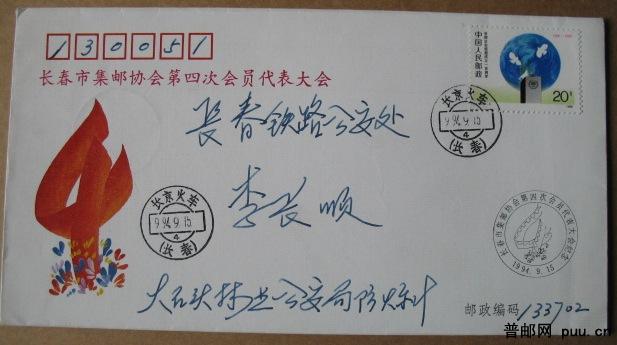 130051
长春市集邮协会第四次会员代表大会
中国人民邮政
20分
长京火车
9 94.9.15
4
(长春)
长春铁路公安处
长京火车
9 94.9.15
4
(长春)
李长顺
长春市集邮协会第四次会员代表大会纪念
1994.9.15
大石头林业公安局防火
邮政编码 133702
普邮网 puu.cn